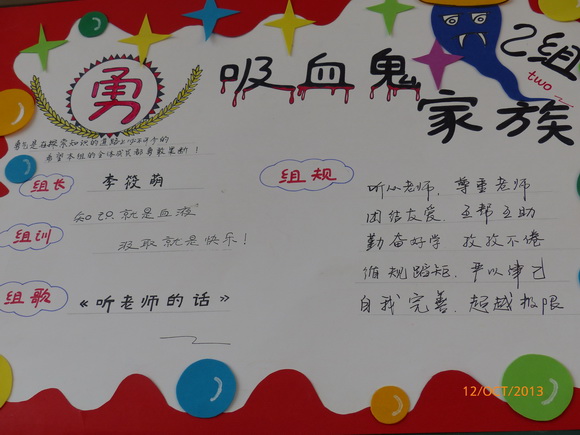 勇
吸血鬼
2组
two
家族
勇气是在探索知识的道路上必不可少的
希望本组的全体成员都勇敢果断！
组长
李筱萌
组训
知识就是血液
汲取就是快乐！
组歌
《听老师的话》
组规
听从老师．尊重老师
团结友爱．互帮互助
勤奋好学 孜孜不倦
循规蹈矩．严以律己
自我完善．超越极限
12/OCT/2013